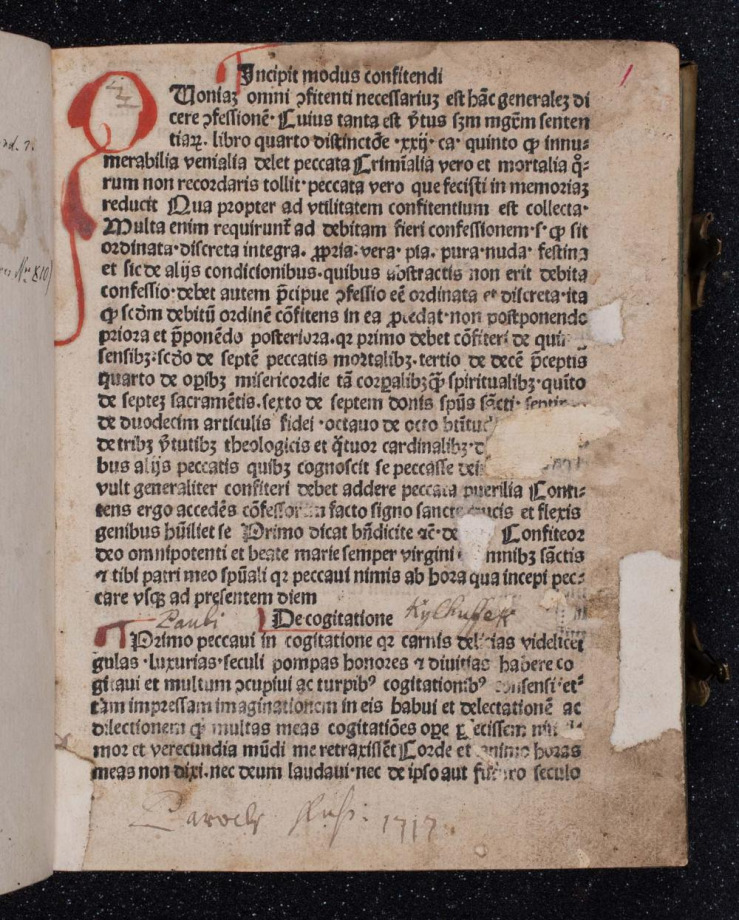 Incipit modus confitendi
QUoniaʒ omni ↄfitenti necessariuʒ est hāc generaleʒ di
cere ↄfessionē· Cuius tanta est v̄tus sʒm mgr̄m senten
tiaꝝ. libro quarto distinctōe ·xxij· ca· quinto ꝙ innu⸗
merabilia venialia delet peccata Crimīalia vero et mortalia q̊⸗
rum non recordaris tollit·peccata vero que fecisti in memoriaʒ
reducit Qua propter ad vtilitatem confitentium est collecta·
Multa enim requirunt̄ ad debitam fieri confessionem·s·ꝙ sit
ordinata·discreta integra. ꝓpria·vera·pia. pura·nuda· festina
et sic de alijs condicionibus·quibus abstractis non erit debita
confessio·debet autem p̄cipue ↄfessio eē ordinata et discreta·ita
ꝙ scd̄m debitū ordinē cōfitens in ea ꝓcedat·non postponendo
priora et p̄ponēdo posteriora.qꝛ primo debet cōfiteri de
sensibʒ·scd̄o de septē peccatis mortalibʒ.tertio de decē p̄ceptis
quarto de oꝑibʒ misericordie tā corꝑalibʒ ꝙ̄ spiritualibʒ·quīto
de septeʒ sacramētis.sexto de septem donis spūs sācti·
de duodecim articulis fidei ·octauo de octo
de tribʒ v̄tutibʒ theologicis et q̄tuor cardinalibʒ·
bus alijs peccatis quibʒ cognoscit se peccasse
vult generaliter confiteri debet addere peccata puerilia Confi⸗
tens ergo accedēs cōfessorem facto signo sancte crucis et flexis
genibus hūiliet se Primo dicat bn̄dicite ⁊c̄· Confiteor
deo omnipotenti et beate marie semper virgini sāctis
⁊ tibi patri meo spūali qꝛ peccaui nimis ab hora qua incepi pec⸗
care vsqʒ ad presentem diem
De cogitatione
Primo peccaui in cogitatione qꝛ carnis delicias videlicet
gulas ·luxurias·seculi pompas honores ⁊ diuitias habere co
gitaui et multum ↄcupiui ac turpibꝰ cogitationibꝰ consensi
tam impressam imaginationem in eis habui et delectationē ac
dilectionem ꝙ multas meas cogitatiōes oꝑe
mor et verecundia mūdi me retraxissēt Corde et animo horas
meas non dixi.nec deum laudaui·nec de ipso aut futuro seculo
1717